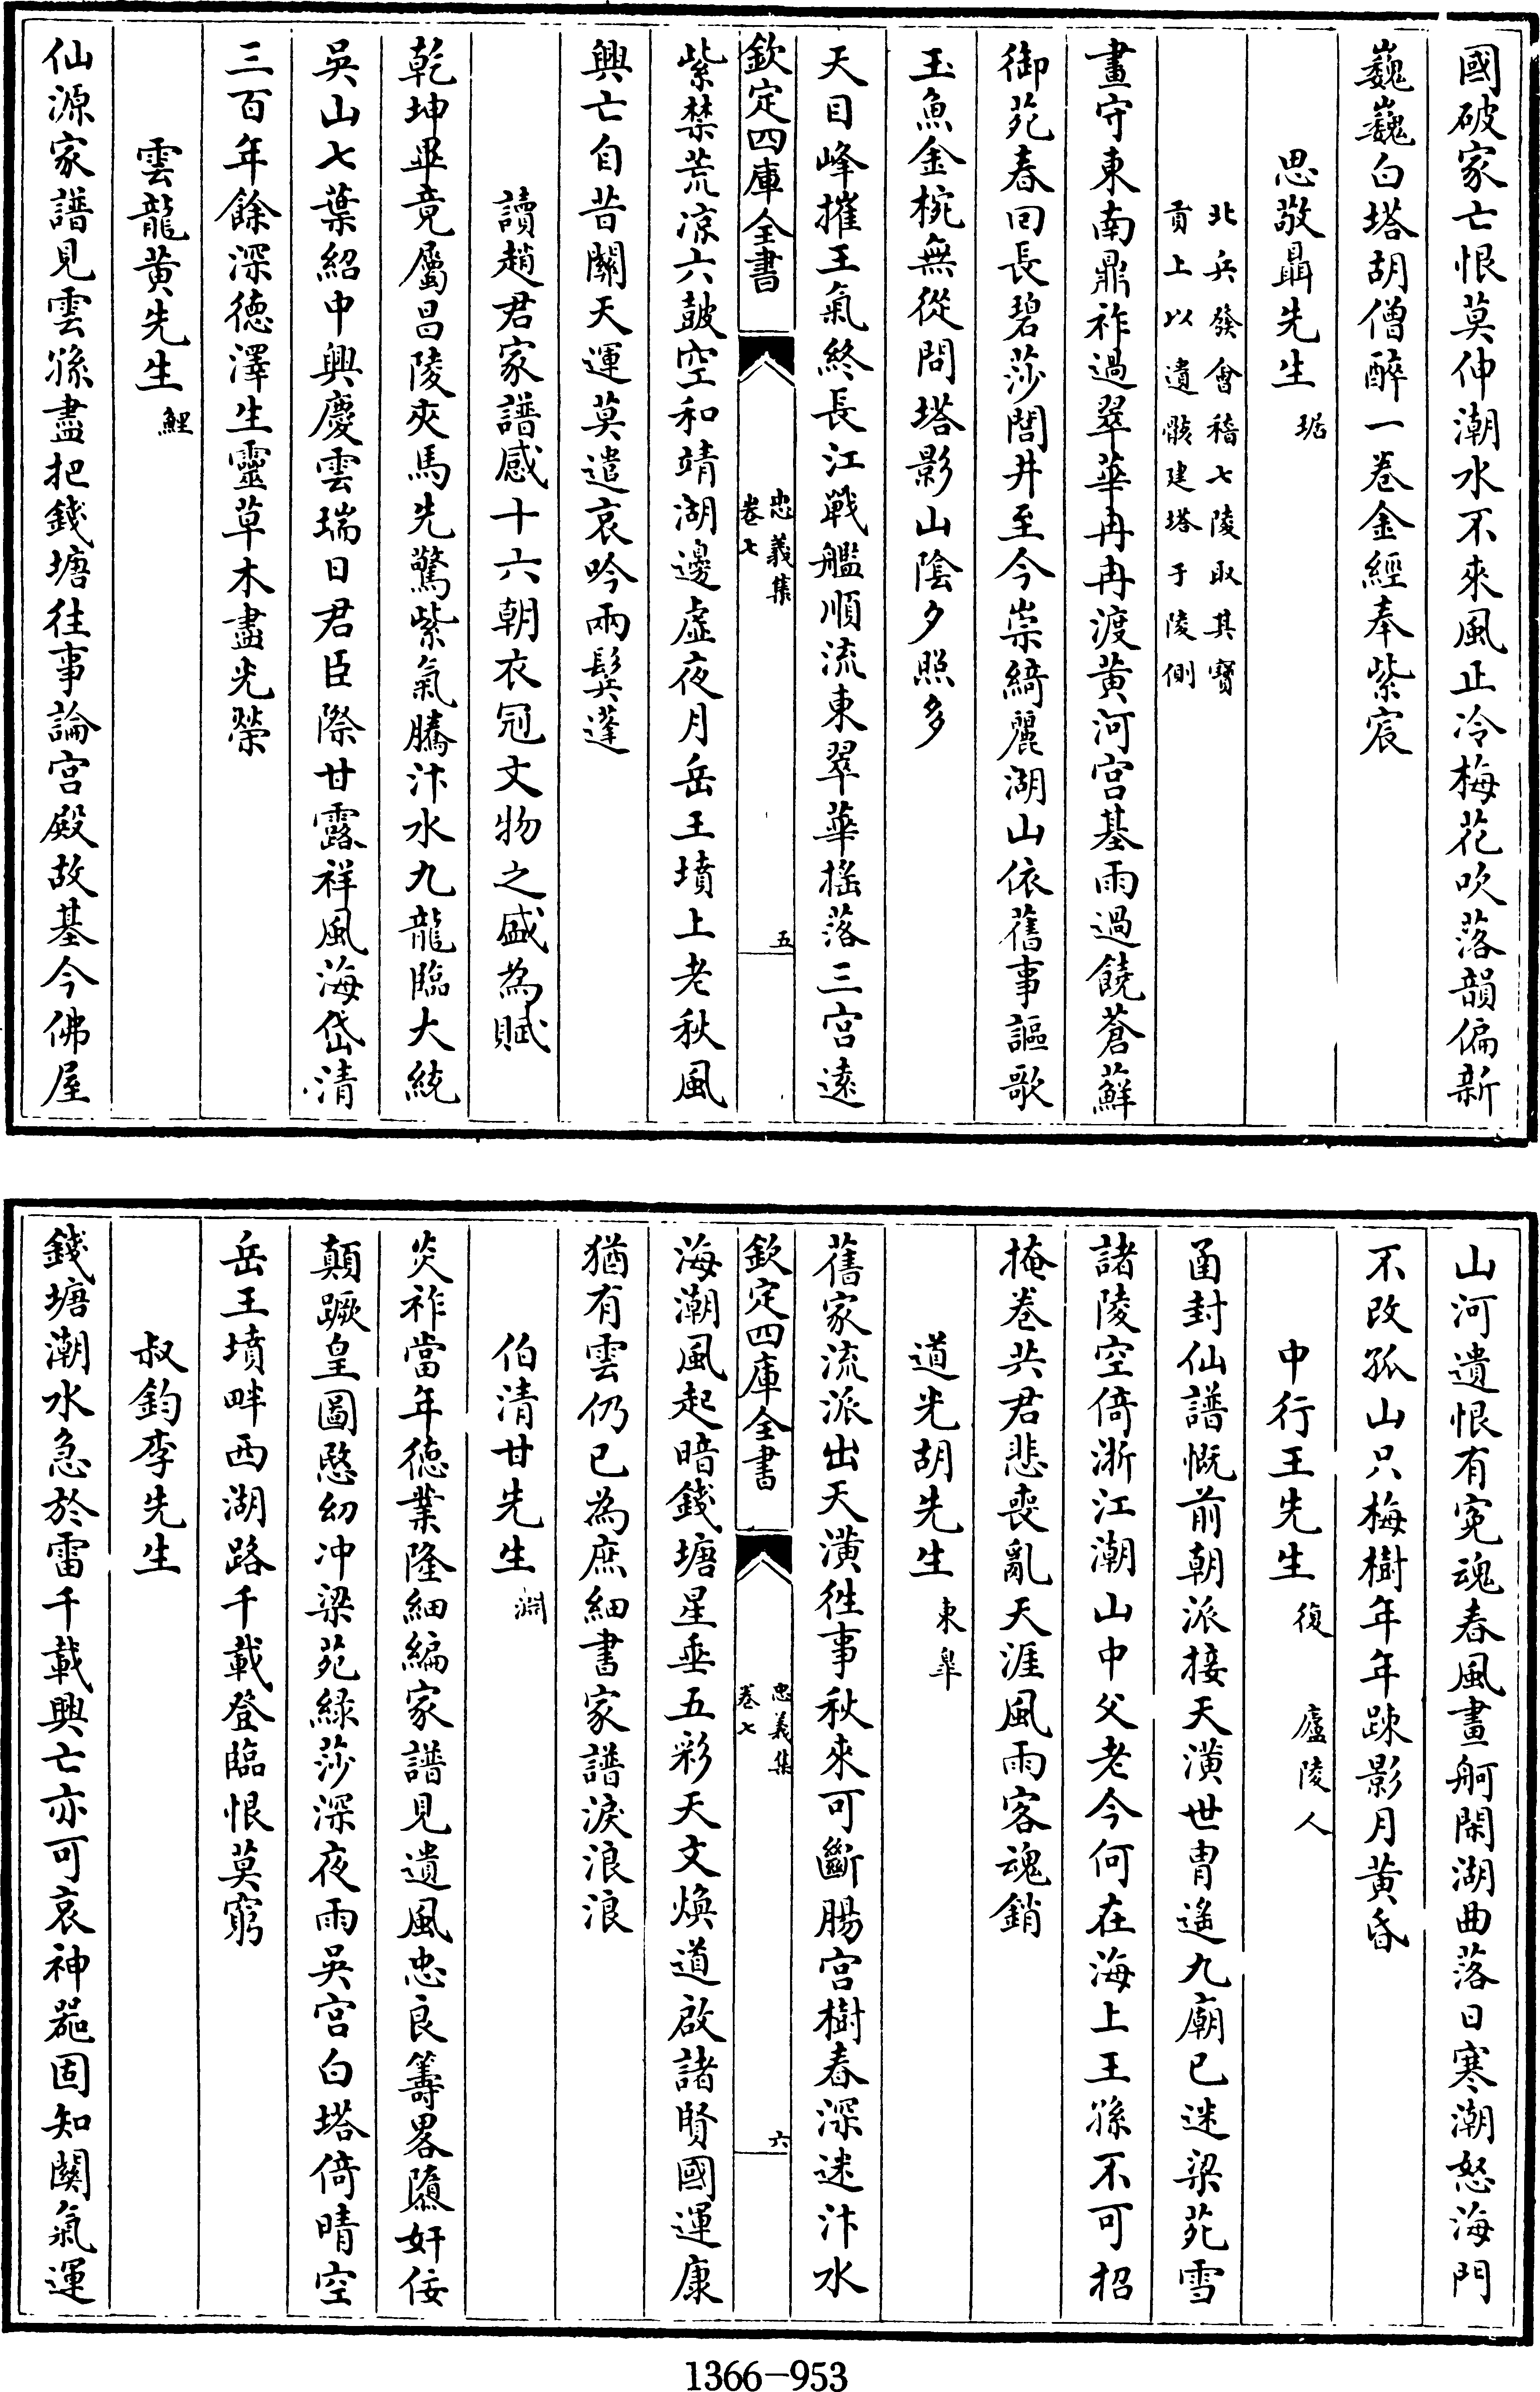 國破家亡恨莫伸潮水不來風正冷梅花吹落韻偏新
巍巍白塔胡僧醉一卷金經奉紫宸
思敬聶先生 琚
北兵發會稽七陵取其寶
貢上以遺骸建塔于陵側
畫守東南鼎祚過翠華冉冉渡黃河宮基雨過饒蒼蘚
御苑春回長碧莎閤井至今崇綺麗湖山依舊事謳歌
玉魚金椀無從問塔影山陰夕照多
天目峰摧王氣終長江戰艦順流東翠華搖落三宮遠
欽定四庫全書
忠義集
卷七
五
紫禁荒凉六鼓空和靖湖邊虛夜月岳王墳上老秋風
興亡自昔關天運莫遣哀吟兩鬂蓬
讀趙君家譜感十六朝衣冠文物之盛為賦
乾坤畢竟屬昌陵夾馬先驚紫氣騰汴水九龍臨大統
吳山七葉紹中興慶雲瑞日君臣際甘露祥風海岱清
三百年餘深德澤生靈草木盡光榮
雲龍黃先生 鯉
仙源家譜見雲孫盡把錢塘往事論宮殿故基今佛屋
山河遺恨有寃魂春風畫舸閑湖曲落日寒潮怒海門
不改孤山只梅樹年年踈影月黃昏
中行王先生 復 廬陵人
函封仙譜慨前朝派接天潢世胄遙九廟已迷梁苑雪
諸陵空倚浙江潮山中父老今何在海上王孫不可招
掩卷共君悲喪亂天涯風雨客魂銷
道光胡先生 東臯
舊家流派出天潢徃事秋來可斷腸宮樹春深迷汴水
欽定四庫全書
忠義集
卷七
六
海潮風起暗錢塘星垂五彩天文煥道啟諸賢國運康
猶有雲仍已為庶細書家譜淚浪浪
伯清甘先生 淵
炎祚當年德業隆細編家譜見遺風忠良籌畧隳奸佞
顛蹶皇圖愍幼冲梁苑綠莎深夜雨吳宮白塔倚晴空
岳王墳畔西湖路千載登臨恨莫窮
叔鈞李先生
錢塘潮水急於雷千載興亡亦可哀神噐固知關氣運
1366-953